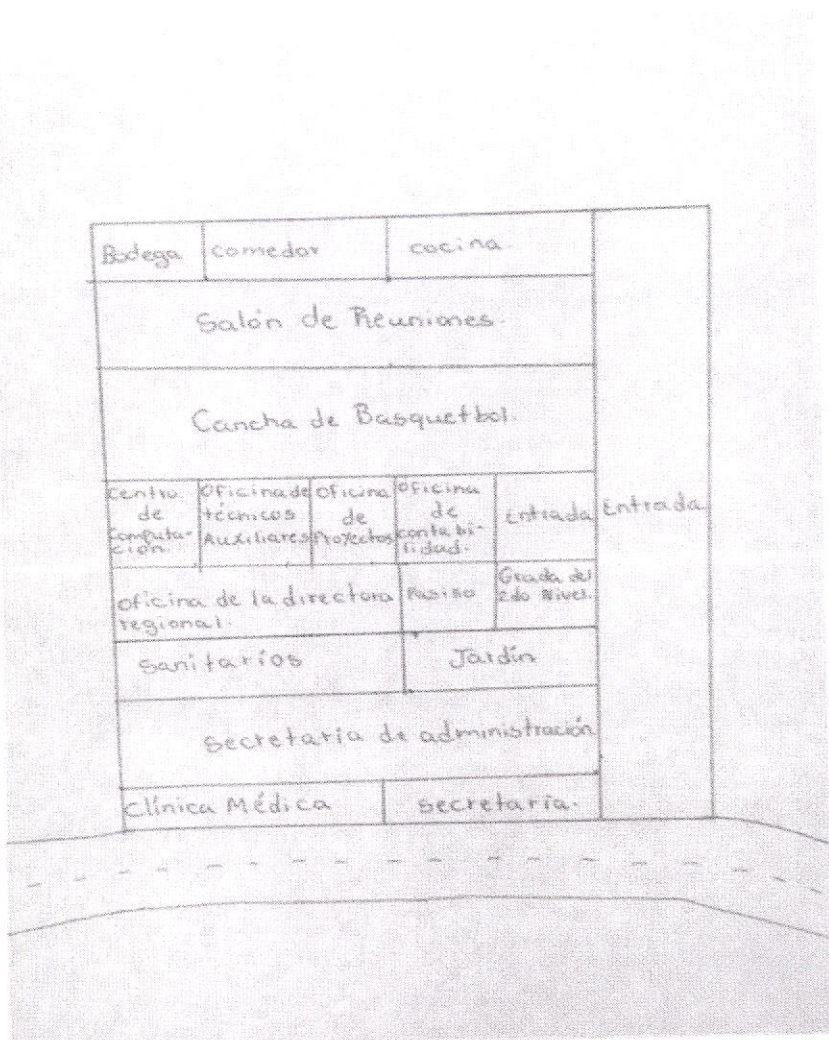 Bodega
comedor
cocina.
Salón de Reuniones.
Cancha de Basquetbol.
Centro
de
Computa-
ción.
Oficina de
técnicos
Auxiliares
Oficina
de
Proyectos
Oficina
de
contabi-
lidad.
Entrada
Entrada
Oficina de la directora
regional.
Pasillo
Grada del
2do Nivel.
Sanitarios
Jardín
Secretaría de administración
Clínica Médica
Secretaría.